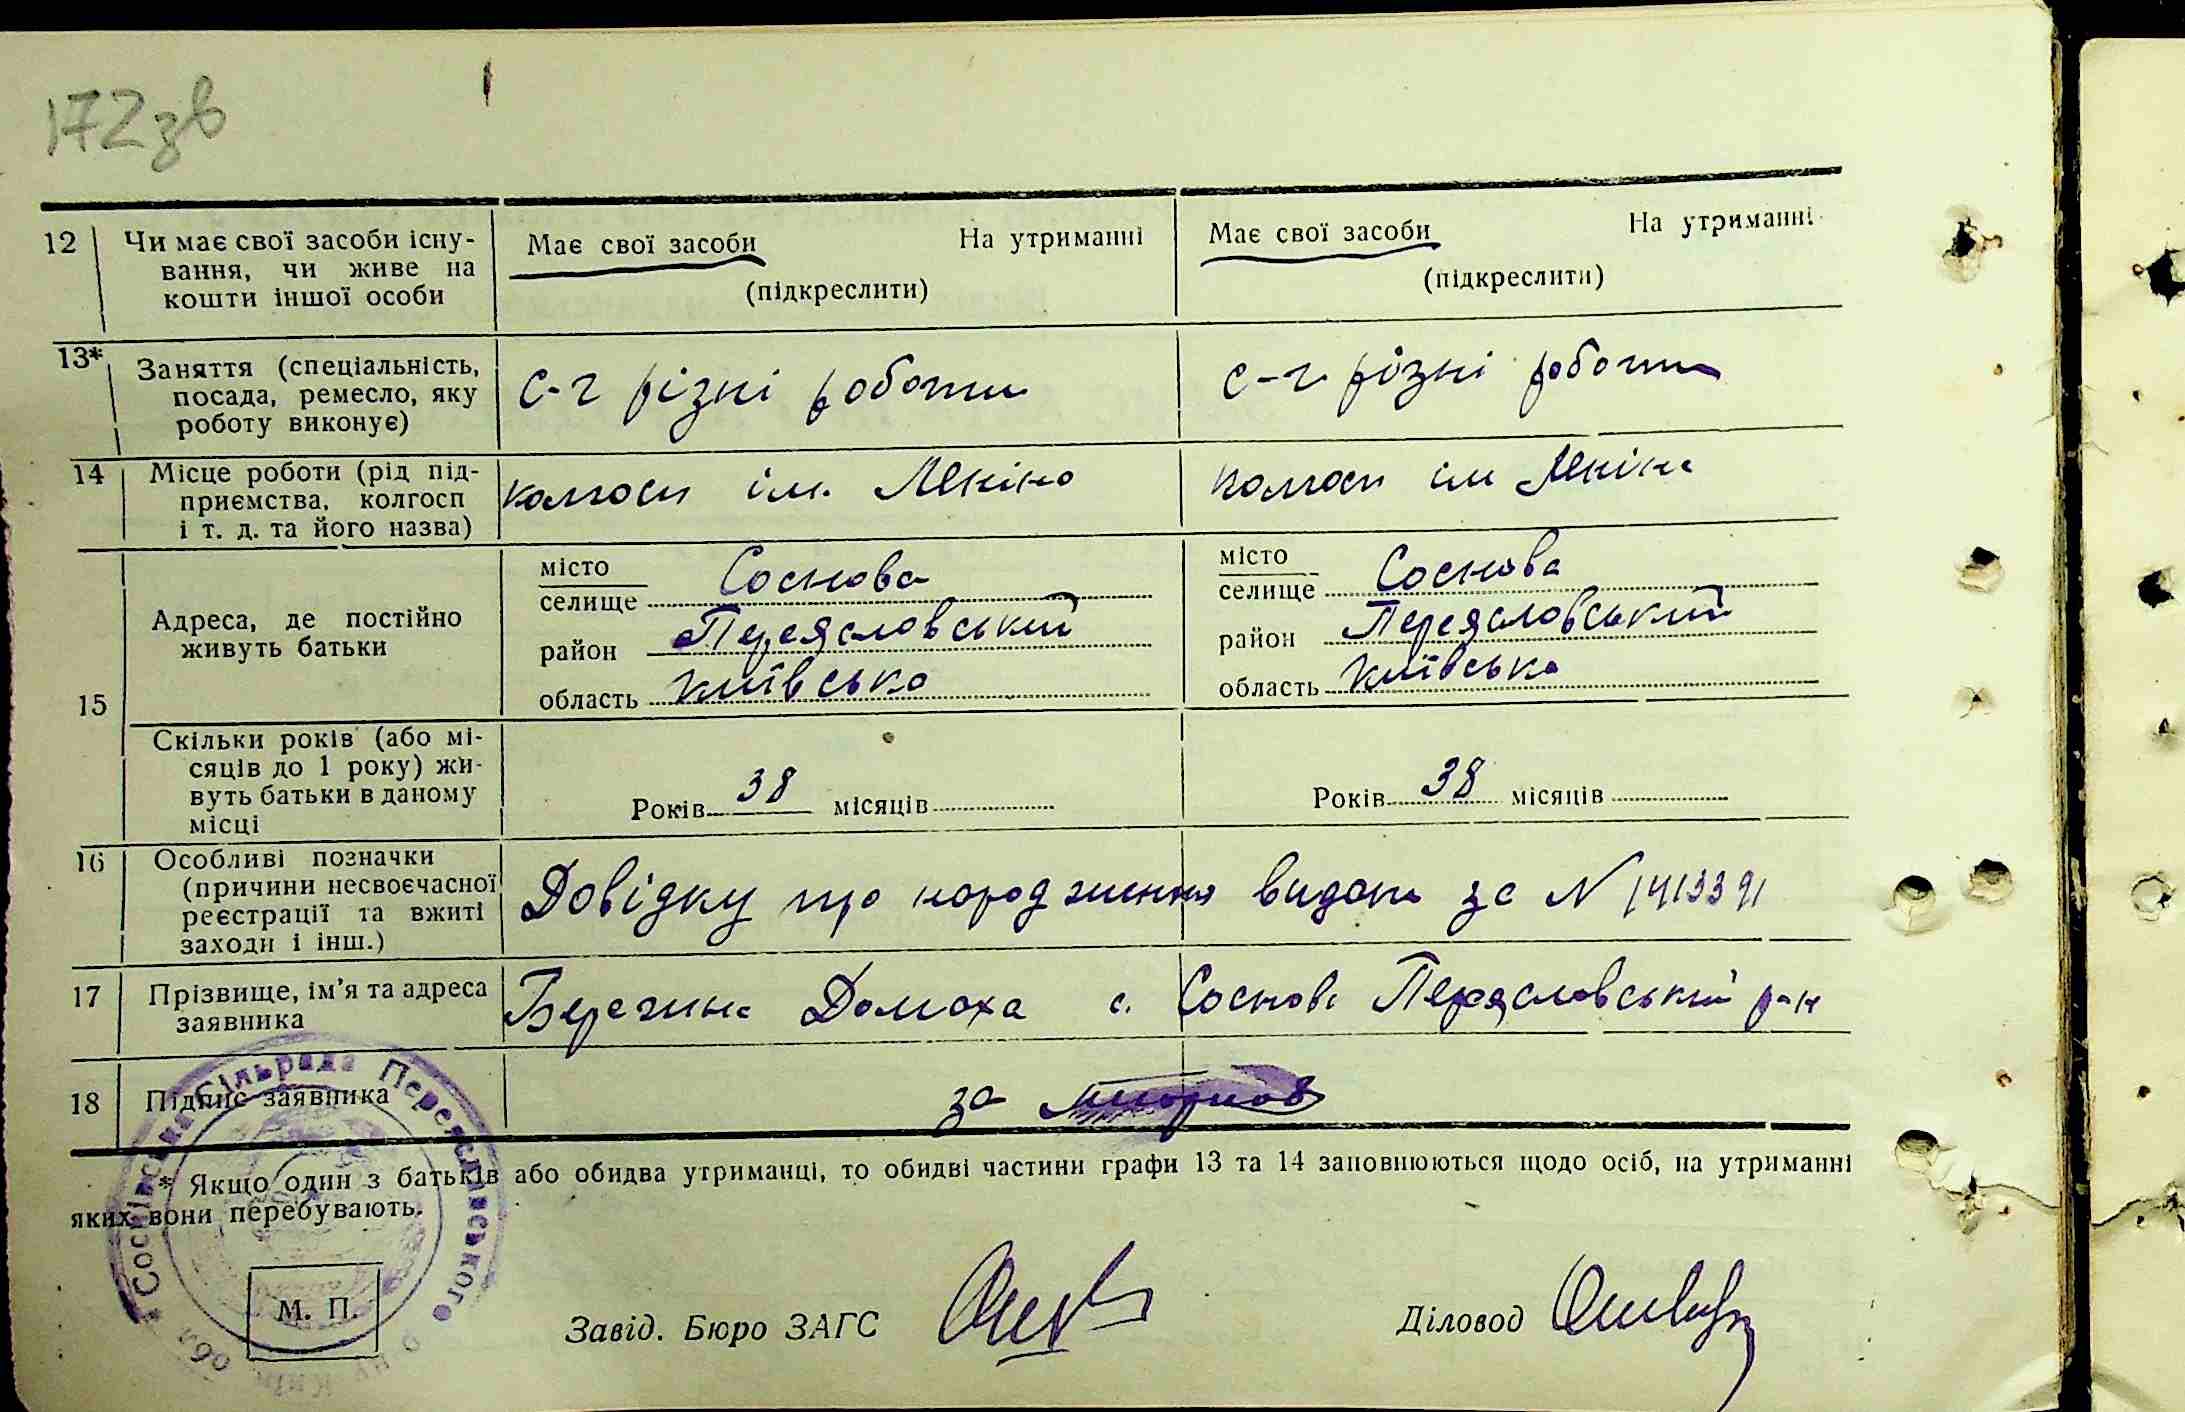 172зв
12 Чи має свої засоби існу-
вання, чи живе на
кошти іншої особи
Має свої засоби На утриманні
(підкреслити)
Має свої засоби На утриманні
(підкреслити)
13* Заняття (спеціальність,
посада, ремесло, яку
роботу виконує)
с-г різні роботи
с-г різні роботи
14 Місце роботи (рід під-
приємства, колгосп
і т. д. та його назва)
колгосп ім. Леніна
колгосп ім Леніна
15 Адреса, де постійно
живуть батьки
місто
селище Соснова
район Переяславський
область Київська
місто
селище Соснова
район Переяславський
область Київська
Скільки років (або мі-
сяців до 1 року) жи-
вуть батьки в даному
місці
Років 38 місяців
Років 38 місяців
16 Особливі позначки
(причини несвоєчасної
реєстрації та вжиті
заходи і інш.)
Довідку про народження видано за N 1413391
17 Прізвище, ім'я та адреса
заявника
Домаха с. Соснова Переяславський р-н
18 Підпис заявника
за
* Якщо один з батьків або обидва утриманці, то обидві частини графи 13 та 14 заповнюються щодо осіб, на утриманні
яких вони перебувають.
Соснівська сільрада Переяславського
обл
М. П.
Завід. Бюро ЗАГС
Діловод